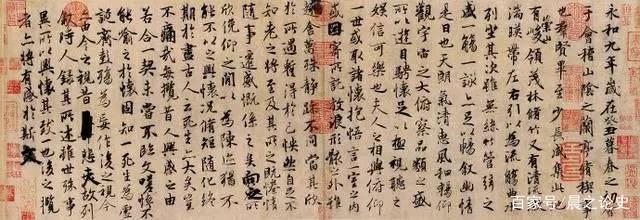 永和九年歲在癸丑暮春之初會
于會稽山陰之蘭亭脩稧事
也羣賢畢至少長咸集此地
有崇山峻領茂林脩竹又有清流激
湍暎帶左右引以為流觴曲水
列坐其次雖無絲竹管弦之
盛一觴一詠亦足以暢敘幽情
是日也天朗氣清惠風和暢仰
觀宇宙之大俯察品類之盛
所以遊目騁懷足以極視聽之
娛信可樂也夫人之相與俯仰
一世或取諸懷抱悟言一室之內
或因寄所託放浪形骸之外雖
趣舍萬殊靜躁不同當其欣
於所遇蹔得於己怏然自足不
知老之將至及其所之既惓情
隨事遷感慨係之矣向之所
欣俛仰之閒以為陳迹猶不
能不以之興懷況脩短隨化終
期於盡古人云死生亦大矣豈
不痛哉每攬昔人興感之由
若合一契未嘗不臨文嗟悼不
能喻之於懷固知一死生為虛
誕齊彭殤為妄作後之視今
亦由今之視昔悲夫故列
敘時人錄其所述雖世殊事
異所以興懷其致一也後之攬
者亦將有感於斯文
百家号/晨之论史